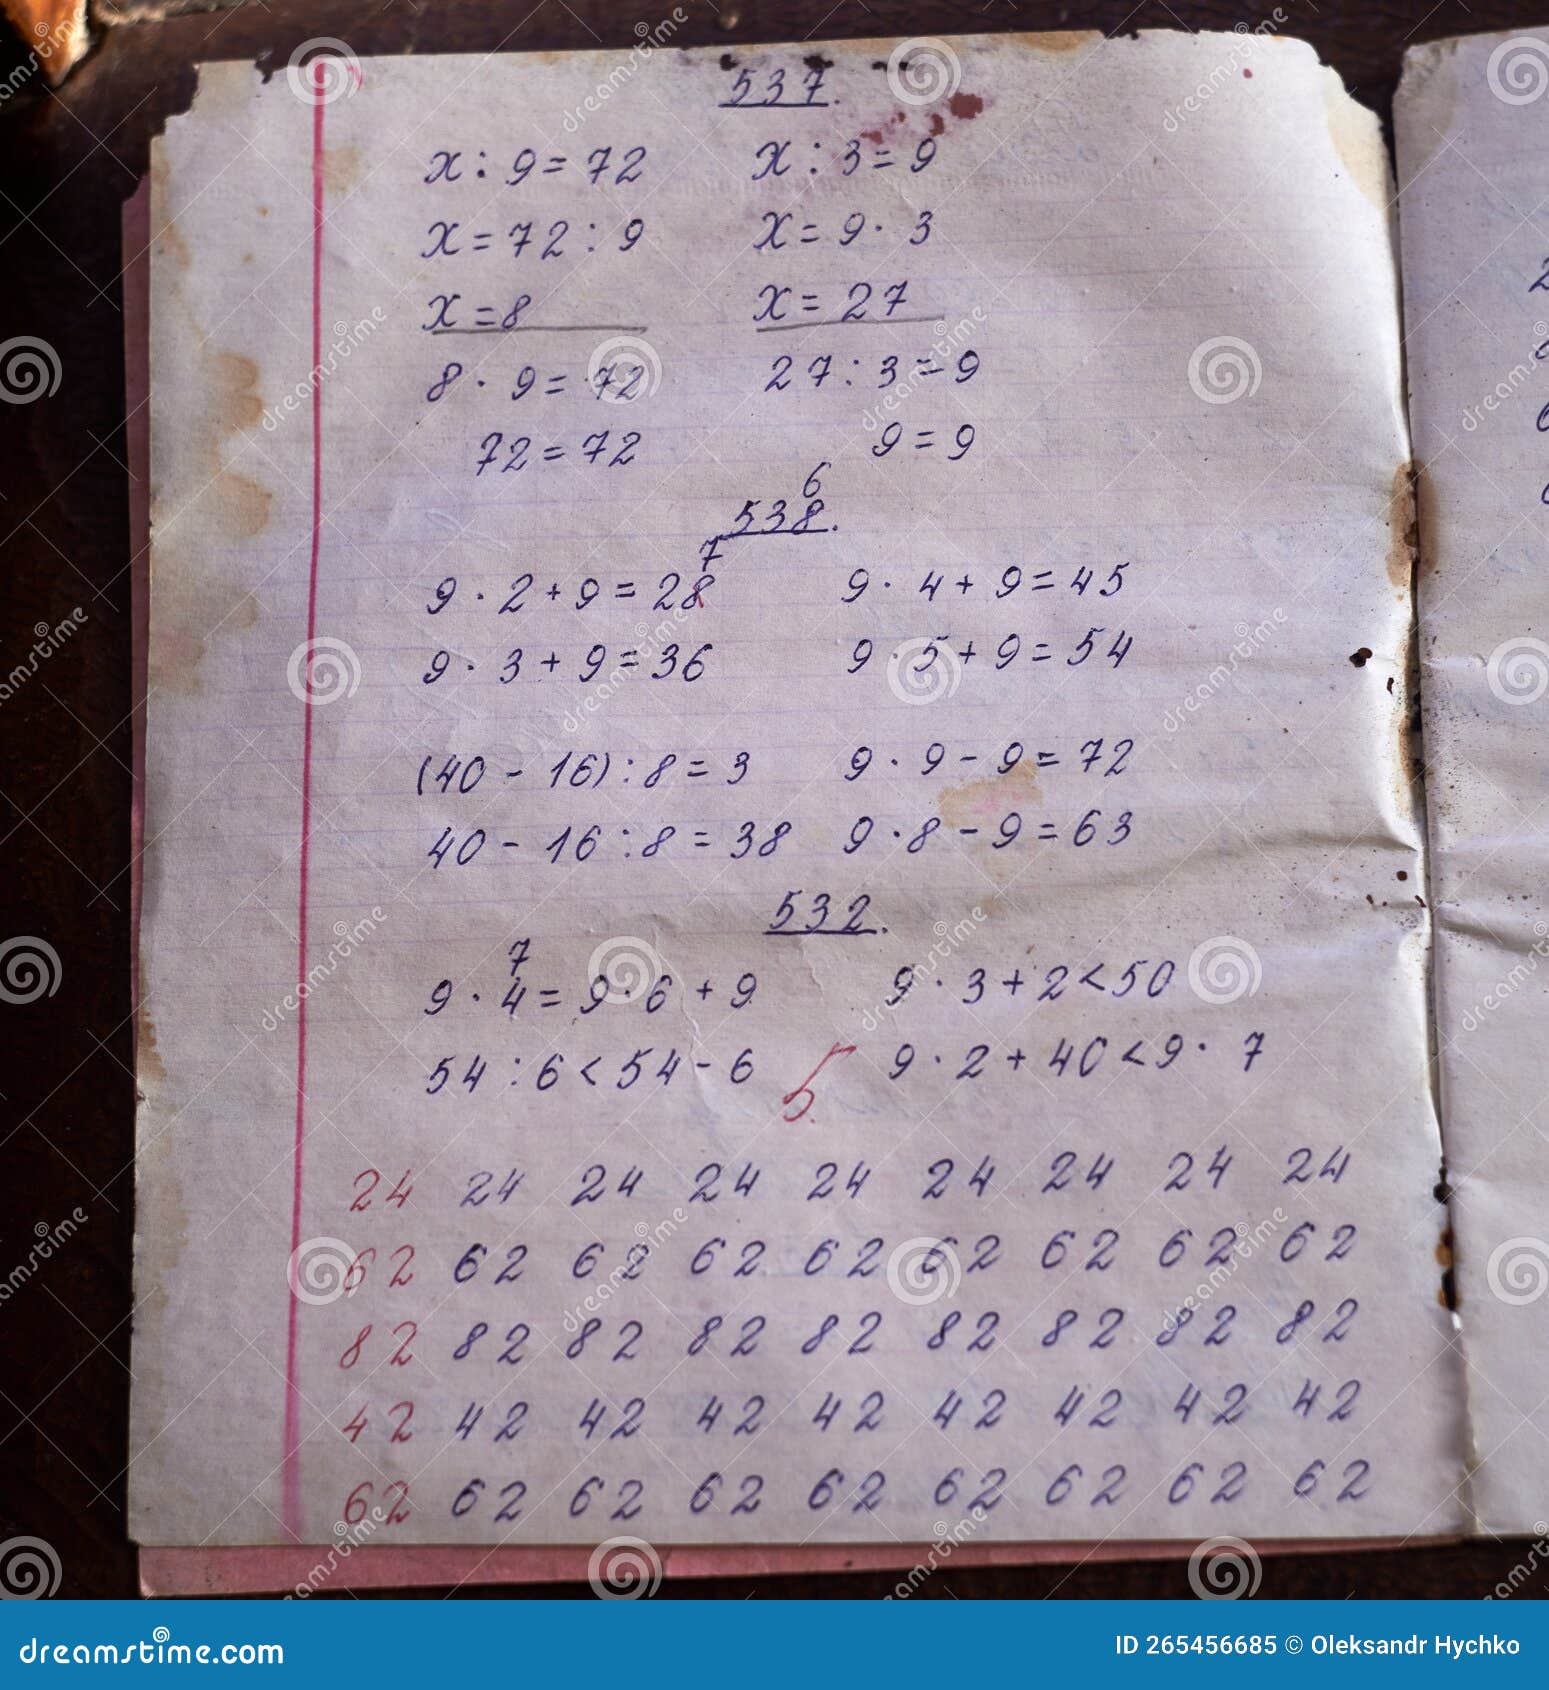 537.
x : 9 = 72 x : 3 = 9
x = 72 : 9 x = 9 · 3
x = 8 x = 27
8 · 9 = 72 27 : 3 = 9
72 = 72 9 = 9
6
538.
7
9 · 2 + 9 = 28 9 · 4 + 9 = 45
9 · 3 + 9 = 36 9 · 5 + 9 = 54
(40 - 16) : 8 = 3 9 · 9 - 9 = 72
40 - 16 : 8 = 38 9 · 8 - 9 = 63
532.
7
9 · 4 = 9 · 6 + 9 9 · 3 + 2 < 50
54 : 6 < 54 - 6 9 · 2 + 40 < 9 · 7
5.
24 24 24 24 24 24 24 24 24
62 62 62 62 62 62 62 62 62
82 82 82 82 82 82 82 82 82
42 42 42 42 42 42 42 42 42
62 62 62 62 62 62 62 62 62
dreamstime.com ID 265456685 © Oleksandr Hychko